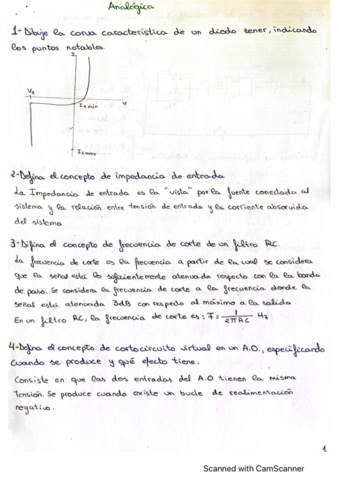 Analógica
1- Dibuje la curva característica de un diodo zener, indicando
los puntos notables.
I
Vz
V
Iz min
Iz max
2- Defina el concepto de impedancia de entrada
La Impedancia de entrada es la "vista" por la fuente conectada al
sistema y la relación entre tensión de entrada y la corriente absorvida
del sistema
3- Difina el concepto de frecuencia de corte de un filtro RC.
La frecuencia de corte es la frecuencia a partir de la cual se considera
que la señal está lo suficientemente atenuada respecto con la la banda
de paso. Se considera la frecuencia de corte a la frecuencia donde la
señal está atenuada 3dB con respeto al máximo a la salida
En un filtro RC, la frecuencia de corte es: f = 1/2πRC Hz
4- Defina el concepto de cortocircuito virtual en un A.O., especificando
cuando se produce y qué efecto tiene.
Consiste en que las dos entradas del A.O tienen la misma
tensión. Se produce cuando existe un bucle de realimentación
negativo.
1
Scanned with CamScanner